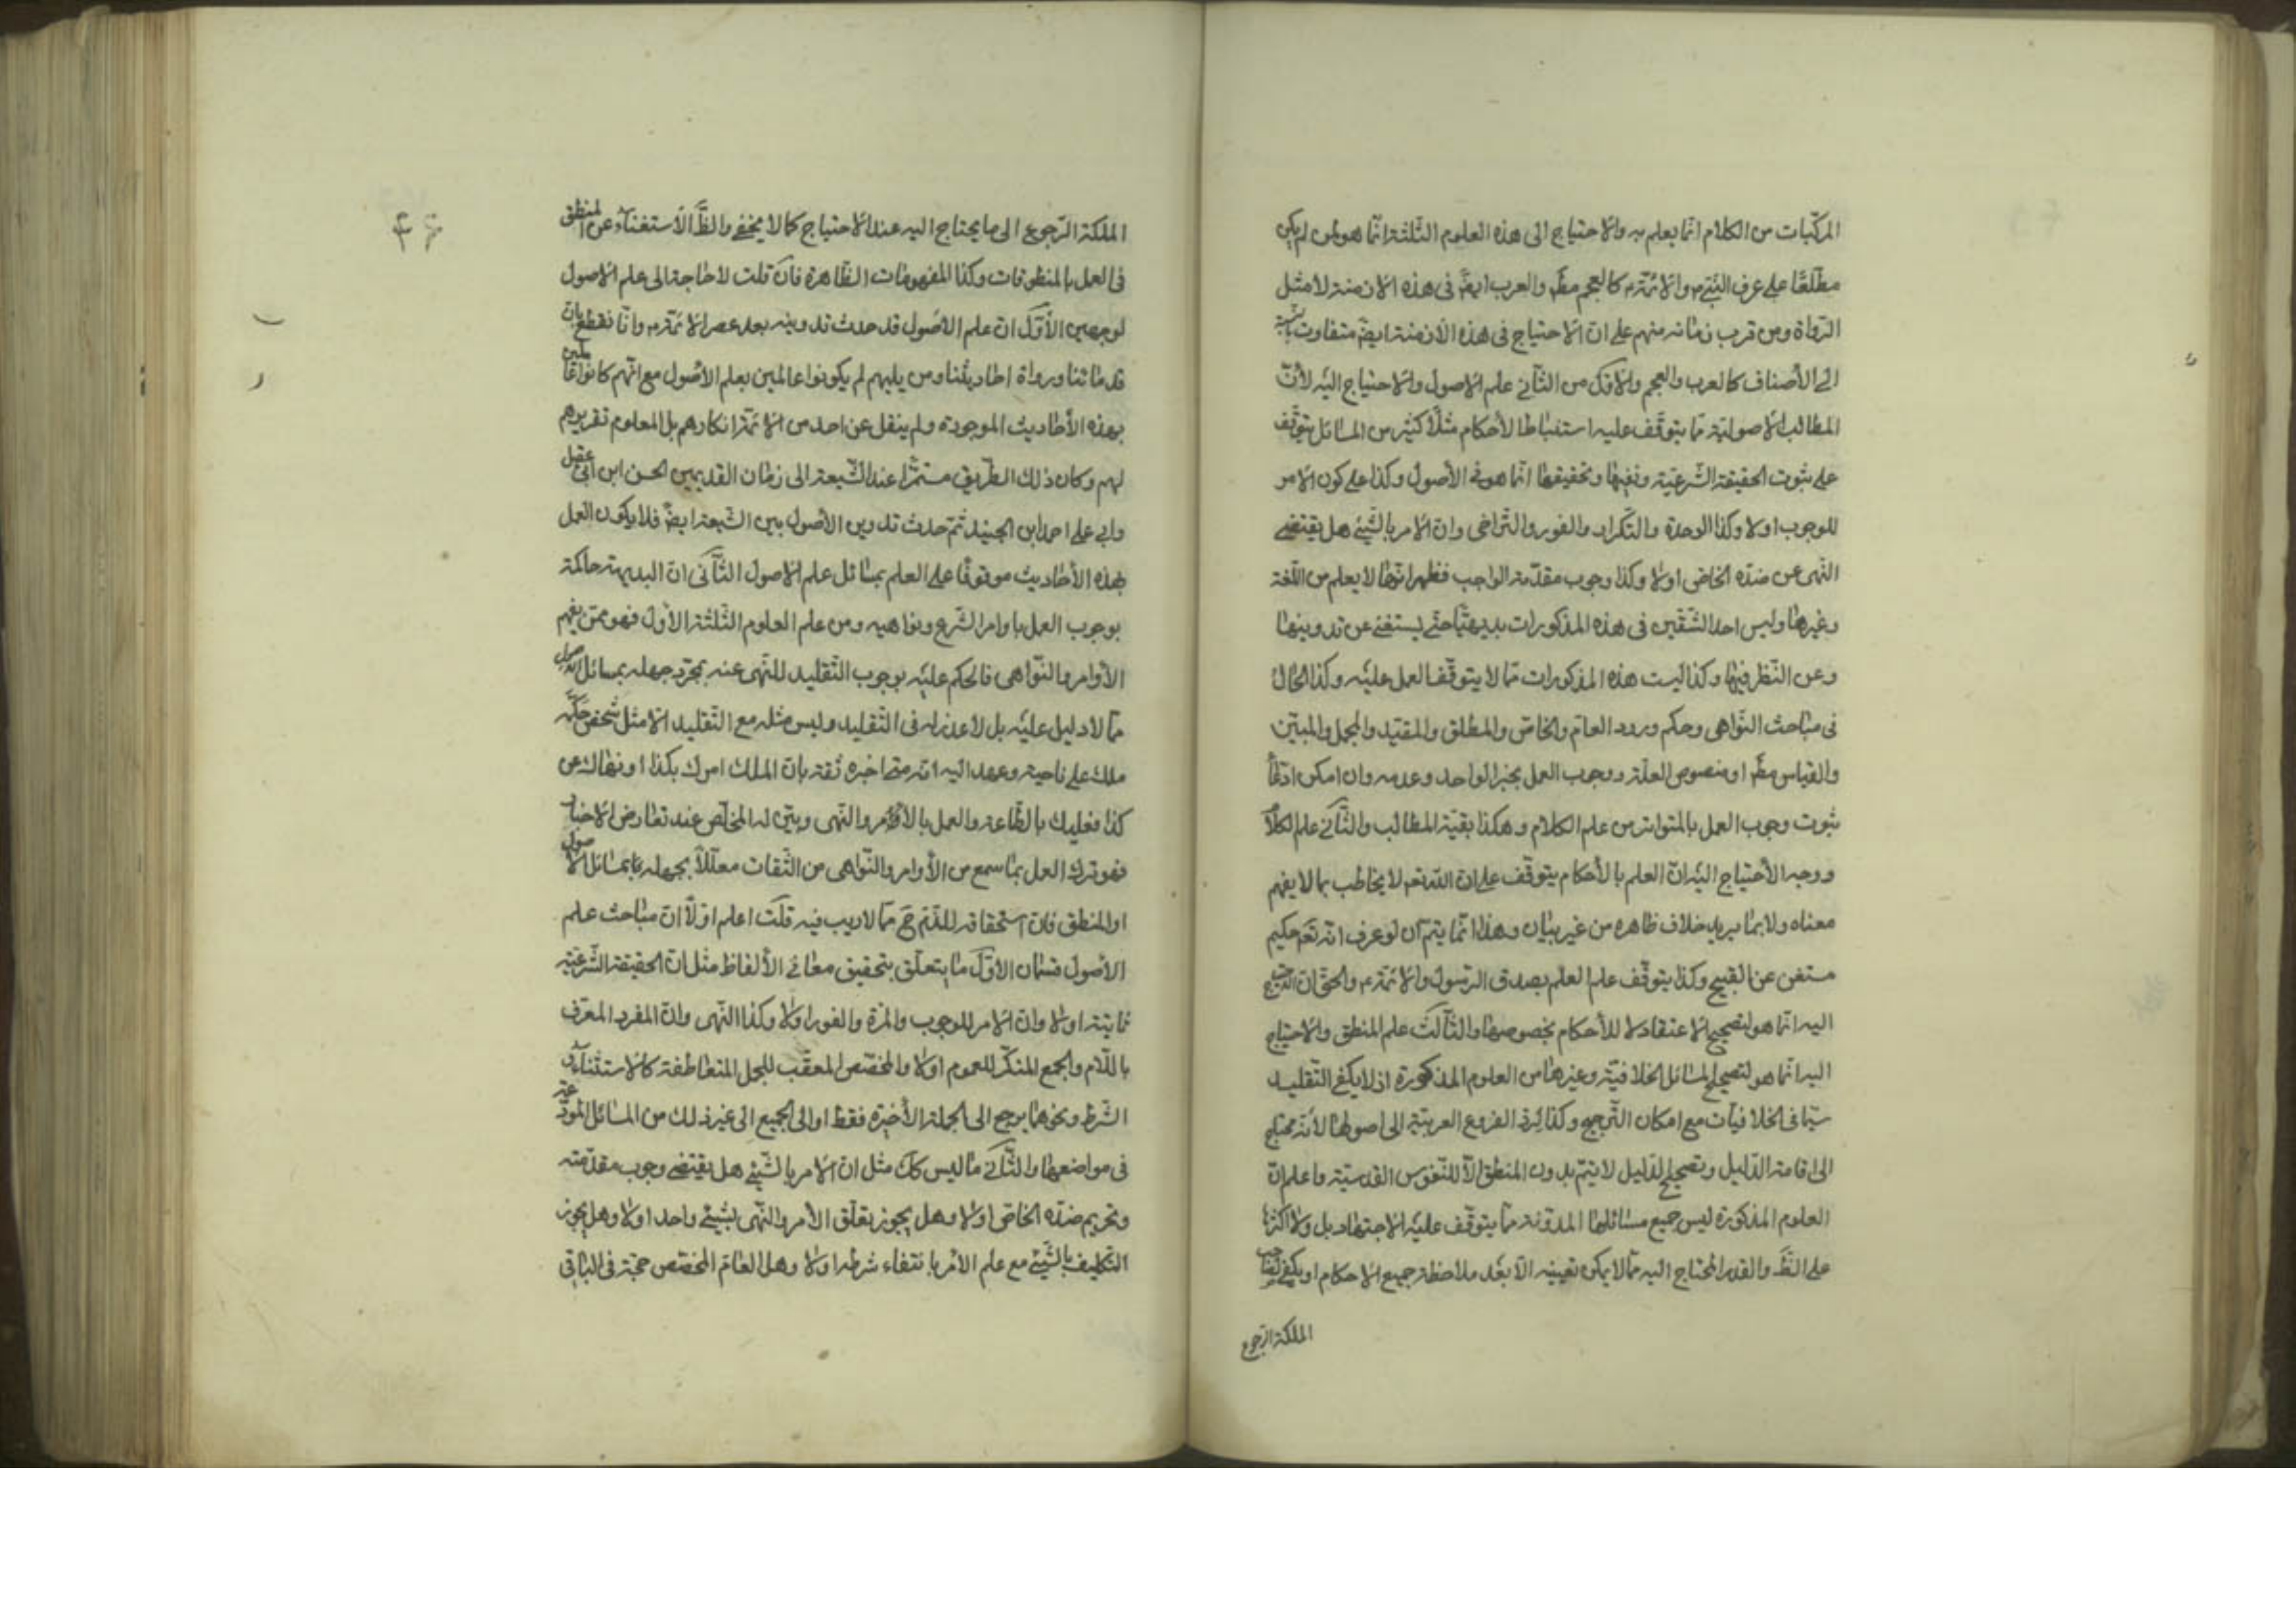 المركّبات من الكلام انّما يعلم به والاحتياج الى هذه العلوم الثلثة انّما هو لمن لم يكن
مطّلعًا على عرف النّبيّ ص والائمّة ع كالعجم مطّ والعرب ايضً فى هذه الازمنة لا مثل
الرّواة ومن قرب زمانه منهم على انّ الاحتياج فى هذه الازمنة ايضً متفاوت بالنسبة
الى الأصناف كالعرب والعجم والاوّل من الثّانى علم الاصول والاحتياج اليه لأنّ
المطالب الاصوليّة ممّا يتوقّف عليه استنباط الأحكام مثلًا كثير من المسائل يتوقّف
على ثبوت الحقيقة الشّرعيّة ونفيها وتحقيقها انّما هو فى الأصول وكذا على كون الامر
للوجوب اولا وكذا الوحدة والتّكرار والفور والتراخى وانّ الامر بالشّيئ هل يقتضى
النّهى عن ضدّه الخاصّ اولا وكذا وجوب مقدّمة الواجب فظهر انّها لا يعلم من اللّغة
وغيرها وليس احد الشّقين فى هذه المذكورات بديهيًّا حتّى يستغنى عن تدوينها
وعن النّظر فيها وكذا ليست هذه المذكورات ممّا لا يتوقّف العمل عليه وكذا الحال
فى مباحث النّواهى وحكم ورود العامّ والخاصّ والمطلق والمقيّد والمجمل والمبيّن
والقياس مطّ او منصوص العلّة ووجوب العمل بخبر الواحد وعدمه وان امكن ادّعاء
ثبوت وجوب العمل بالمتواتر من علم الكلام وهكذا بقيّة المطالب والثّانى علم الكلام
ووجه الأحتياج اليه انّ العلم بالأحكام يتوقّف على انّ اللّه تعم لا يخاطب بما لا يفهم
معناه ولا بما يريد خلاف ظاهره من غير بيان وهذا انّما يتمّ ان لو عرف انّه تعم حكيم
مستغن عن القبيح وكذا يتوقّف على العلم بصدق الرّسول والائمّة ع والحقّ انّ
اليه انّما هو لتصحيح الاعتقاد لا للأحكام بخصوصها والثّالث علم المنطق والاحتياج
اليه انّما هو لتصحيح المسائل الخلافيّة وغيرها من العلوم المذكورة اذ لا يكفى التقليد
سيّما فى الخلافيّات مع امكان التّرجيح وكذا لردّ الفروع الغريبة الى اصولها لأنّه محتاج
الى اقامة الدّليل وتصحيح الدّليل لا يتمّ بدون المنطق الّا للنّفوس القدسيّة واعلم انّ
العلوم المذكورة ليس جميع مسائلها المدوّنة ممّا يتوقّف عليه الاجتهاد بل ولا اكثرها
على الظّ والقدر المحتاج اليه ممّا لا يمكن تعيينه الّا بعد ملاحظة جميع الاحكام او يكفى لصاحب
الملكة الرّجوع
۴۶
الملكة الرّجوع الى ما يحتاج اليه عند الاحتياج كما لا يخفى والظّ الاستغناء عن المنطق
فى العمل بالمنطوقات وكذا المفهومات الظّاهرة فان قلت لا حاجة الى علم الاصول
لوجهين الأوّل انّ علم الاصول قد حدث تدوينه بعد عصر الائمّة ع وانّا نقطع بانّ
قدمائنا ورواة احاديثنا ومن يليهم لم يكونوا عالمين بعلم الأصول مع انّهم كانوا عاملين
بهذه الأحاديث الموجودة ولم ينقل عن احد من الائمّة انكارهم بل المعلوم تقريرهم
لهم وكان ذلك الطّريق مستمرًّا عند الشّيعة الى زمان القديمين الحسن ابن ابى عقيل
وابى على احمد ابن الجنيد ثمّ حدث تدوين الأصول بين الشّيعة ايضً فلا يكون العمل
بهذه الأحاديث موقوفًا على العلم بمسائل علم الاصول الثّانى انّ البديهة حاكمة
بوجوب العمل باوامر الشّرع ونواهيه ومن علم العلوم الثّلثة الأول فهو ممّن يفهم
الأوامر والنّواهى فالحكم عليه بوجوب التّقليد للنّهى عنه بمجرّد جهله بمسائل الاصول
ممّا لا دليل عليه بل لا عذر له فى التّقليد وليس مثله مع التّقليد الّا مثل شخص حكّمه
ملك على ناحية وعهد اليه انّه متى اخبره ثقة بان الملك امرك بكذا او نهاك عن
كذا فعليك بالطّاعة والعمل بالامر والنّهى وبيّن له المخلّص عند تعارض الاخبار
فهو ترك العمل بما سمع من الأوامر والنّواهى من الثّقات معلّلًا بجهله بمسائل الاصول
او المنطق فانّ استحقاقه للذّم ح ممّا لا ريب فيه قلت اعلم اوّلًا انّ مباحث علم
الأصول قسمان الاوّل ما يتعلّق بتحقيق معانى الألفاظ مثل انّ الحقيقة الشّرعيّة
ثابتة اولا وانّ الامر للوجوب والمرّة والفور اولا وكذا النّهى وانّ المفرد المعرّف
باللّام والجمع المنكّر للعموم اولا والمخصّص المعقّب للجمل المتعاطفة كالاستثناء و
الشّرط ونحوهما يرجع الى الجملة الأخيرة فقط او الى الجميع الى غير ذلك من المسائل المودّعة
فى مواضعها والثّانى ما ليس كك مثل انّ الامر بالشّيئ هل يقتضى وجوب مقدّمته
وتحريم ضدّه الخاصّ اولا وهل يجوز تعلّق الأمر والنّهى بشيئ واحد اولا وهل يجوز
التّكليف بالشّيئ مع علم الامر بانتفاء شرطه اولا وهل العامّ المخصّص حجّة فى الباقى